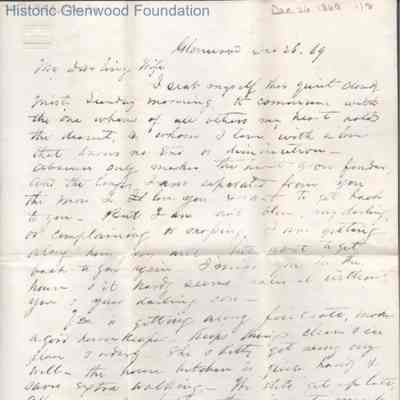 Historic Glenwood Foundation
Dec 26 1869
Glenwood Dec 26. 69
My Dear Wife
I seat myself this quiet
Sunday morning, to commune with
the one whom of all others my heart holds
the dearest, & whom I love with a love
that knows no end or diminution -
absence only makes the heart grow fonder
and the longer I am separated from you
the more I love you & want to get back
to you - But I am not blue, my darling,
or complaining or croaking. I am getting
along but want to get
back again. I miss you in the
house & it hardly seems without
you & your darling
is getting along first rate, makes
a good housekeeper, keeps things clean &
& orderly. She & Betty get along very
well - the house kitchen is quite handy &
saves extra walking - She gets up late